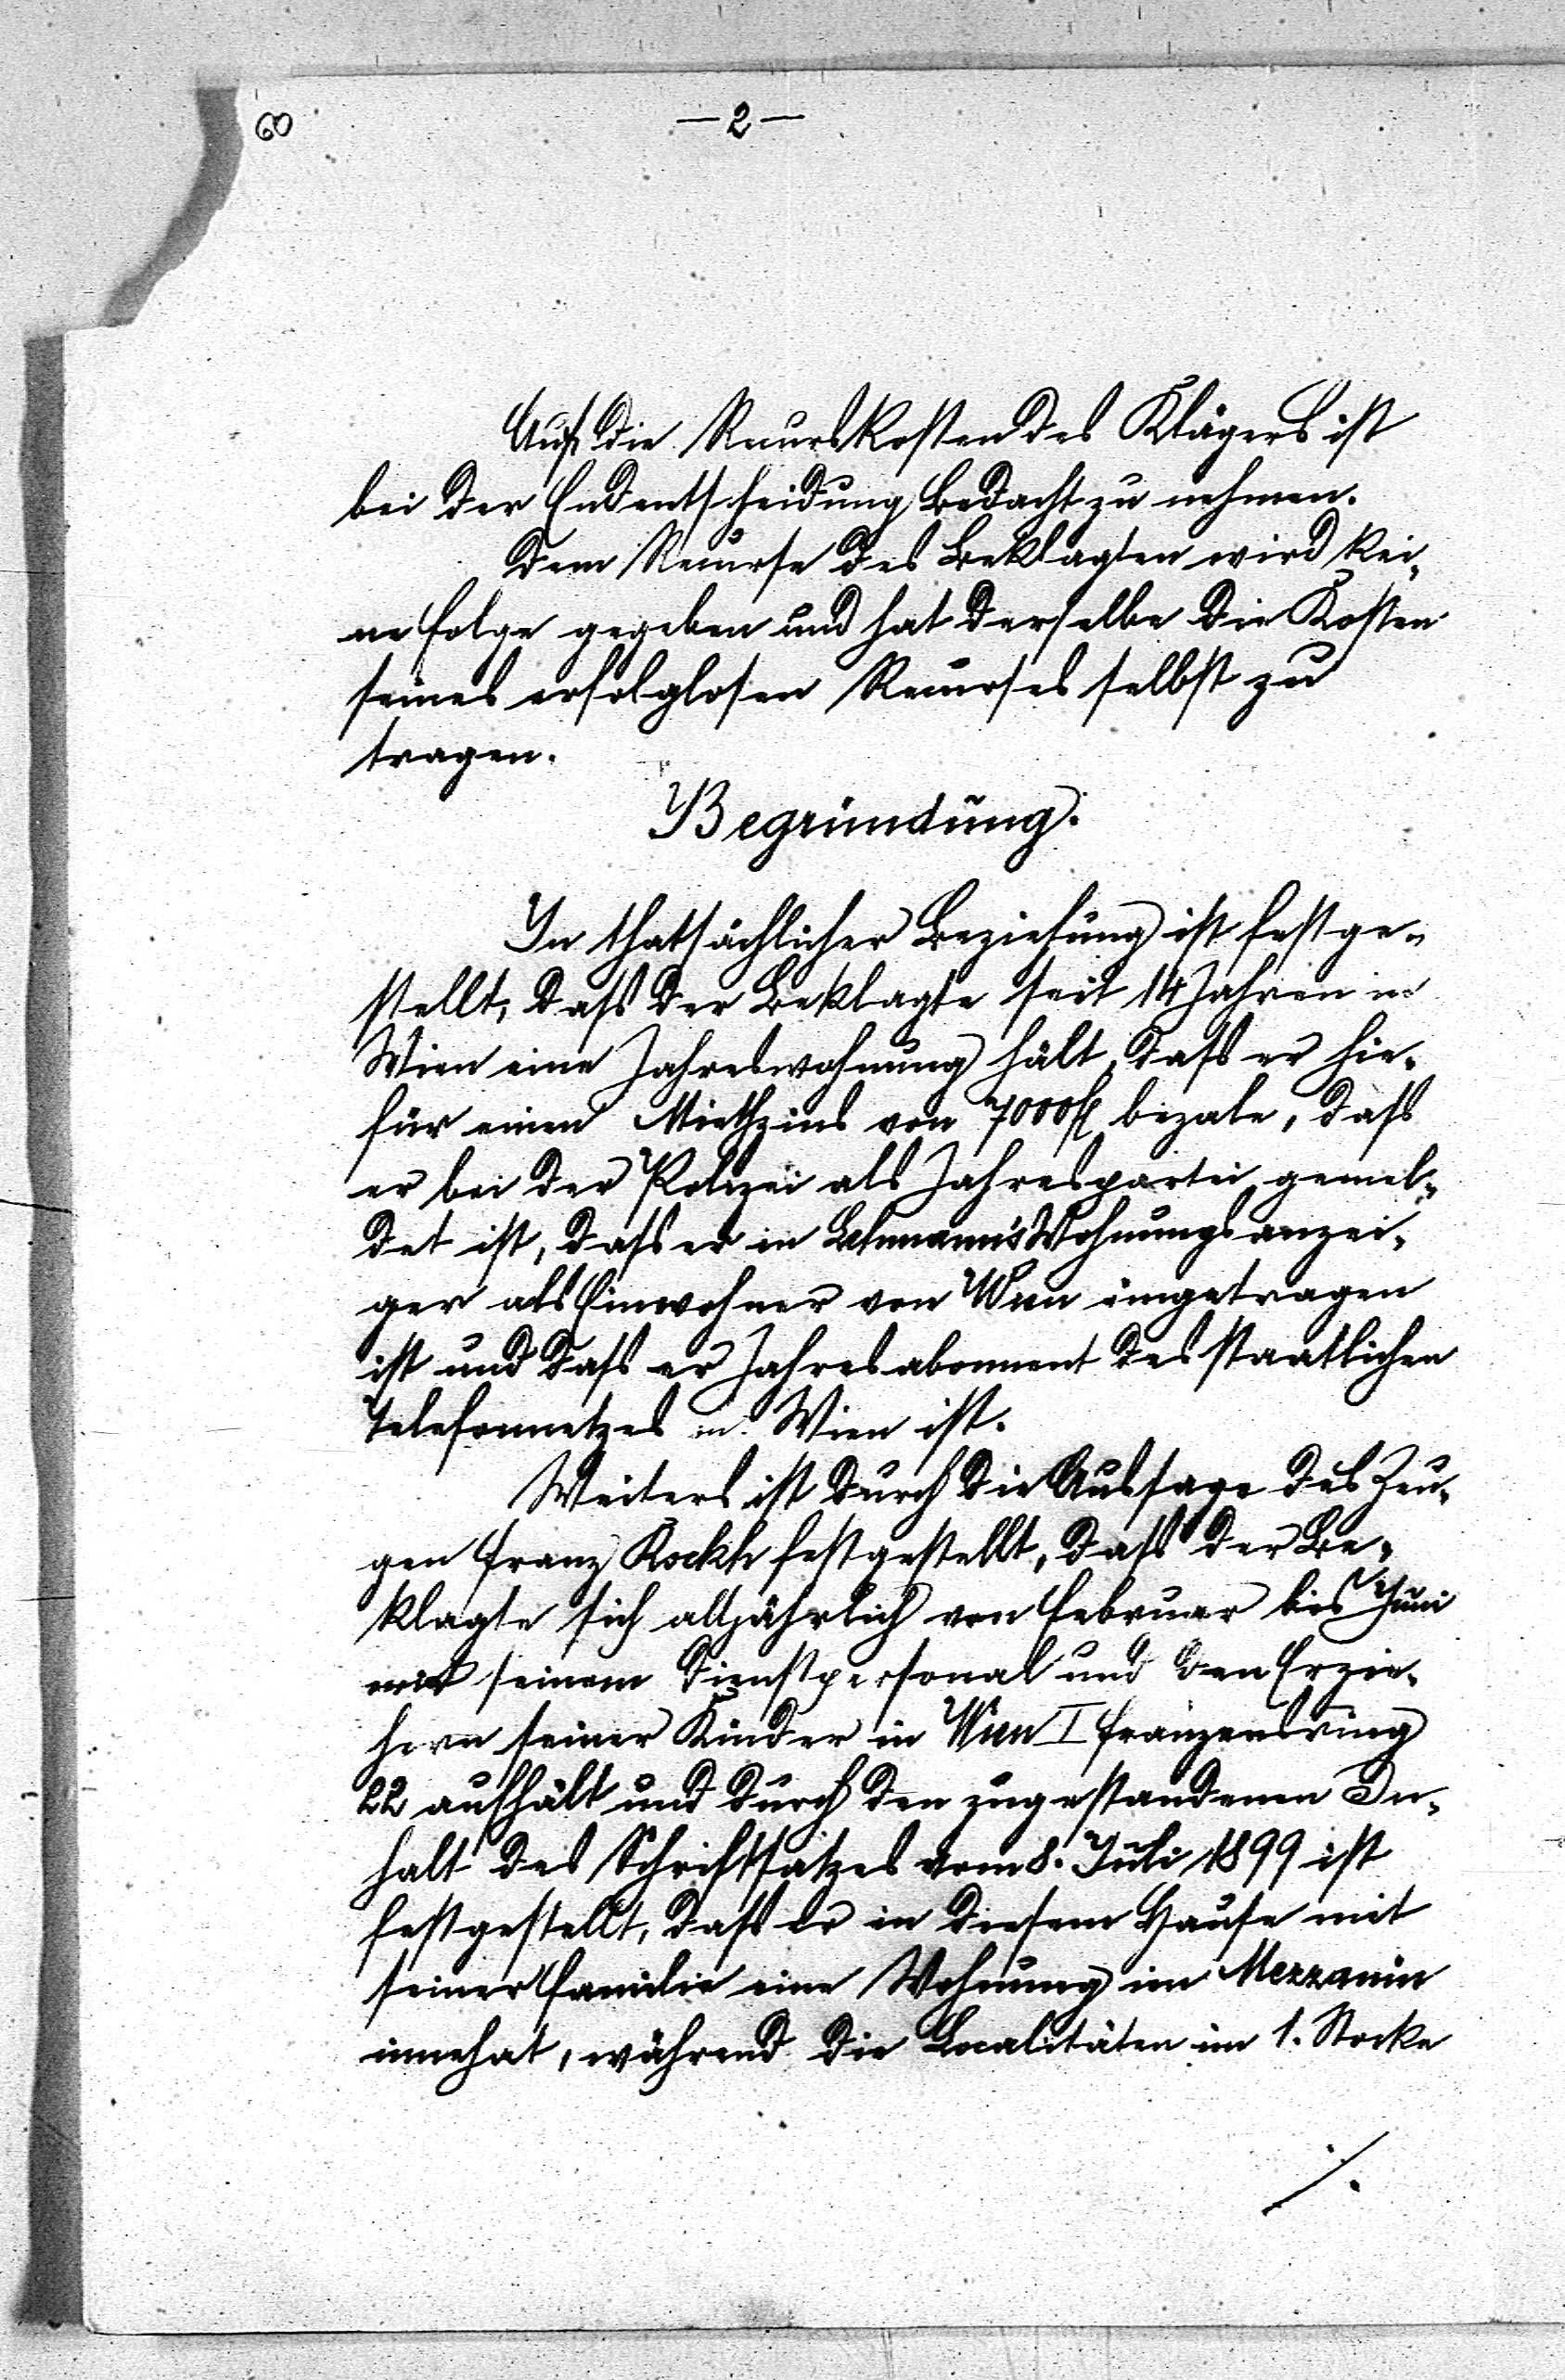 60
—2—
Auf die Recurskosten des Klägers ist
bei der Endentscheidung Bedacht zu nehmen.
Dem Recurse des Beklagten wird kei-
ne Folge gegeben und hat derselbe die Kosten
seines erfolglosen Recurses selbst zu
tragen.
Begründung.
In thatsächlicher Beziehung ist festge-
stellt, dass der Beklagte seit 14 Jahren in
Wien eine Jahreswohnung hält, dass er hie-
für einen Miethzins von 7000 fl bezale, dass
er bei der Polizei als Jahrespartei gemel-
det ist, dass er in Lehmann's Wohnungsanzei-
ger als Einwohner von Wien eingetragen
ist und dass er Jahresabonnent des staatlichen
Telefonnetzes in Wien ist.
Weiters ist durch die Aussage des Zeu-
gen Franz Rockh festgestellt, dass der Be-
klagte sich alljährlich von Februar bis Juni
mit seinem Dienstpersonal und den Erzie-
hern seiner Kinder in Wien I Franzensring
22 aufhält und durch den zugestandenen In-
halt des Schriftsatzes vom 8. Juli 1899 ist
festgestellt, dass er in diesem Hause mit
seiner Familie eine Wohnung im Mezzanin
innehat, während die Localitäten im 1. Stocke
./.